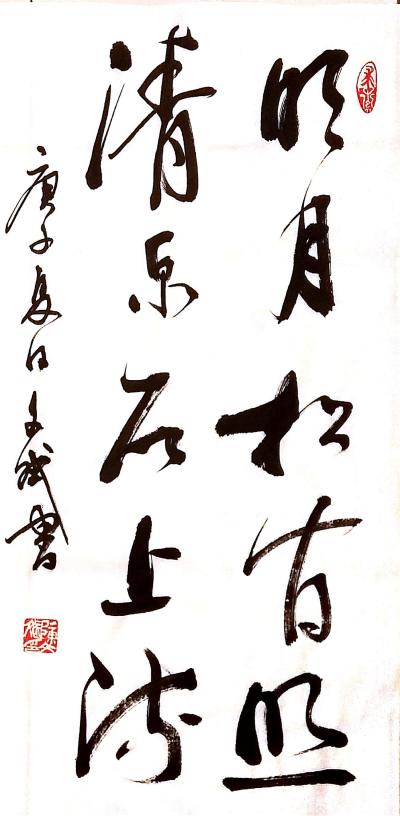 明月松間照
清泉石上流
庚子夏日文斌書